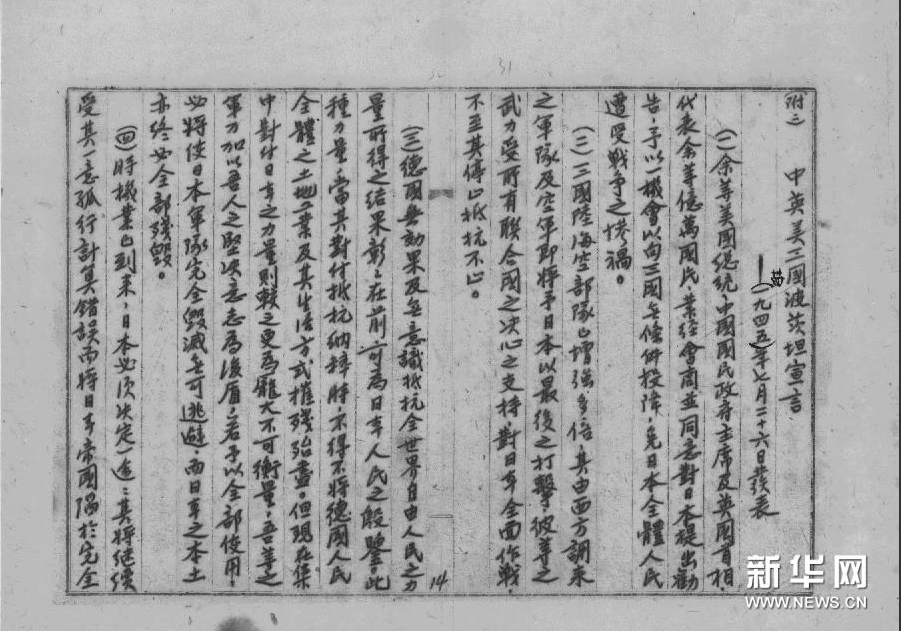 附二 中英美三國波茨坦宣言
(一九四五年七月二十六日發表)
(一)余等美國總統、中國國民政府主席及英國首相、
代表余等億萬國民業經會商並同意對日本提出勸
告、予以一機會以向三國無條件投降、免日本全體人民
遭受戰爭之慘禍。
(二)三國陸海空部隊已增強多倍、其由西方調來
之軍隊及空軍即將予日本以最後之打擊、彼等之
武力受所有聯合國之決心之支持、對日本全面作戰、
不至其停止抵抗不止。
(三)德國無効果及無意識抵抗全世界自由人民之力
量所得之結果彰彰在前、可為日本人民之殷鑒、此
種力量當其對付抵抗納粹時、不得不將德國人民
全體之土地工業及其生活方式摧殘殆盡。但現在集
中對付日本之力量則較之更為龐大不可衡量、吾等之
軍力加以吾人之堅決意志為後盾、若予以全部使用、
必將使日本軍隊完全毀滅無可逃避、而日本之本土
亦終必全部殘毀。
(四)時機業已到來、日本必須決定一途:其將繼續
受其一意孤行計算錯誤而將日本帝國陷於完全
14
31
新华网
WWW.NEWS.CN